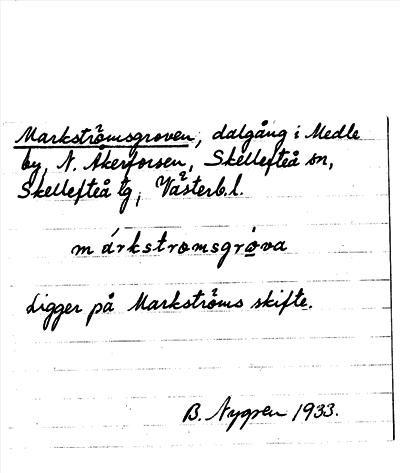 Markströmsgroven, dalgång i Medle
by, N. Åkerforsen, Skellefteå sn,
Skellefteå tg, Västerb.l.
márkstromsgróva
Ligger på Markströms skifte.
B. Nygren 1933.